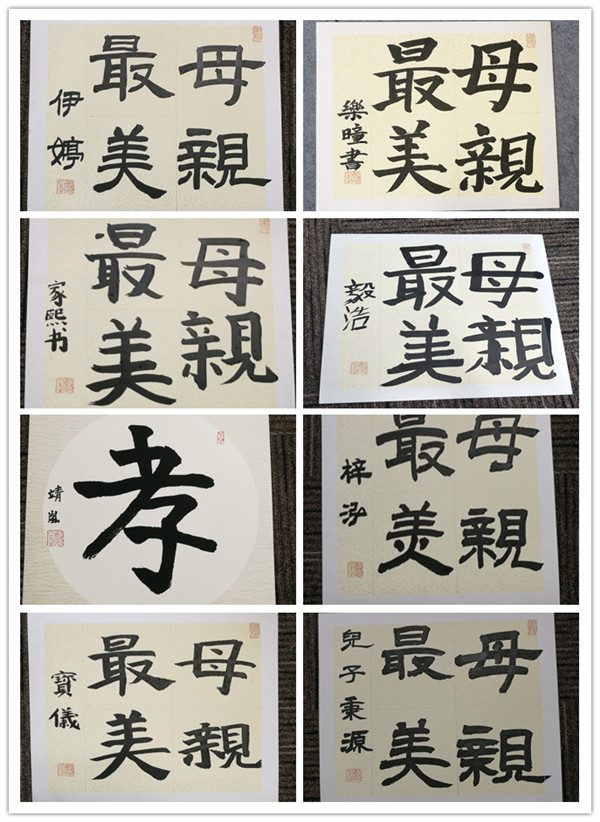 母親
最美
伊婷
母親
最美
樂曈書
母親
最美
家熙书
母親
最美
毅浩
孝
靖岚
母親
最美
梓泓
母親
最美
寶儀
母親
最美
兒子秉源